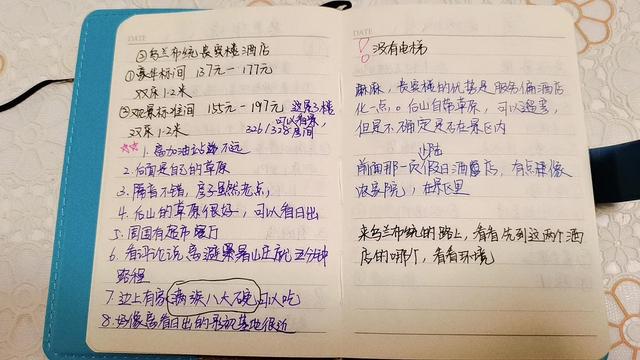 DATE
②乌兰布统长安楼酒店
①豪华标间 137元－177元
双床1.2米
②观景标准间 155元－197元 这是3楼
可以看景,
双床1.2米 326/328房间
☆☆ 1. 离加油站都不远
2. 后面是自己的草原
3. 隔音不错，房子虽然老点,
4. 后山的草原很好，可以看日出
5. 周围有超市餐厅
6. 看评论说离避暑山庄就五分钟
路程
7. 边上有家满族八大碗可以吃
8. 好像离看日出的影视基地很近
DATE
! 没有电梯
麻麻，长安楼的优势是服务偏酒店
化一点。后山自带草原，可以遛弯,
但是不确定是不在景区内
前面那一次假日酒店，有点像
农家院，在景区里
来乌兰布统的路上，看看先到这两个酒
店的哪个，看看环境